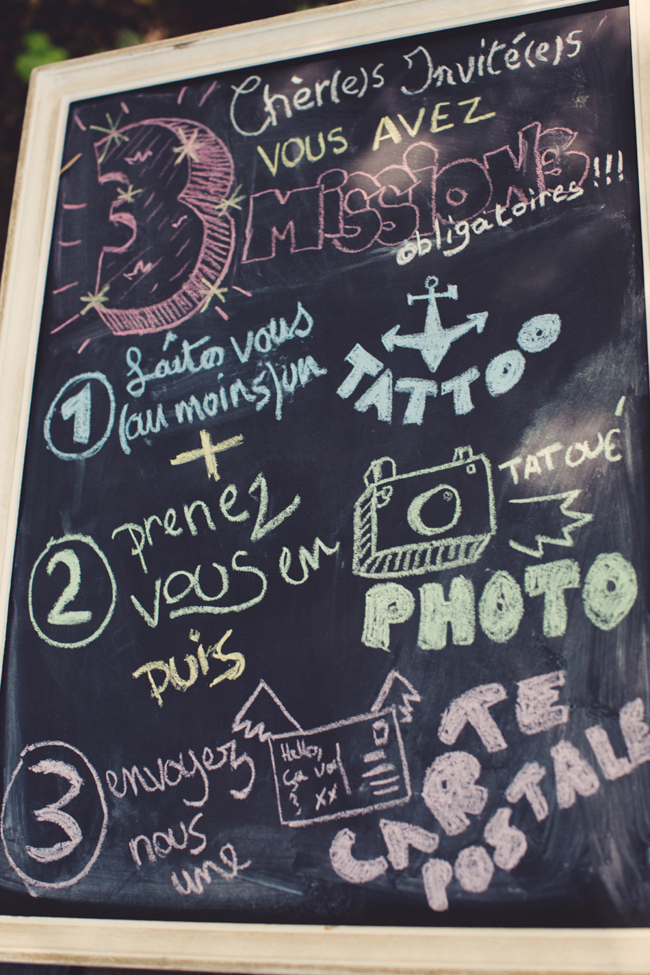 3
Chèr(e)s Invité(e)s
VOUS AVEZ
MISSIONS
obligatoires !!!
1 faites vous
(au moins) un
TATTOO
+
2 prenez
vous en
TATOUÉ
PHOTO
puis
3 envoyez
nous
une
Hello,
ça va
?
xx
CARTE
POSTALE